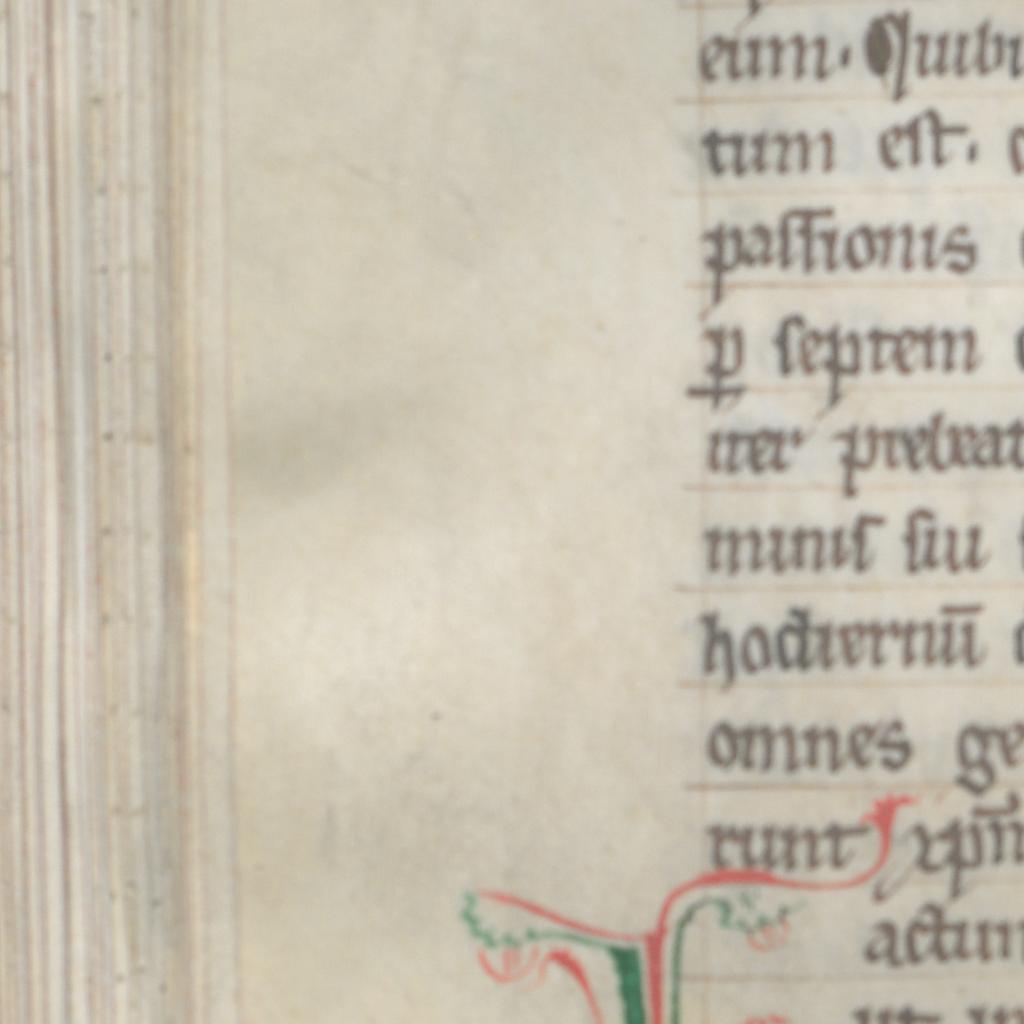 eum. Quibu
tum est.
passionis
ꝑ septem
iter prebeat
minis siu
hodiernū
omnes ge
runt xp̄m
actum
ut